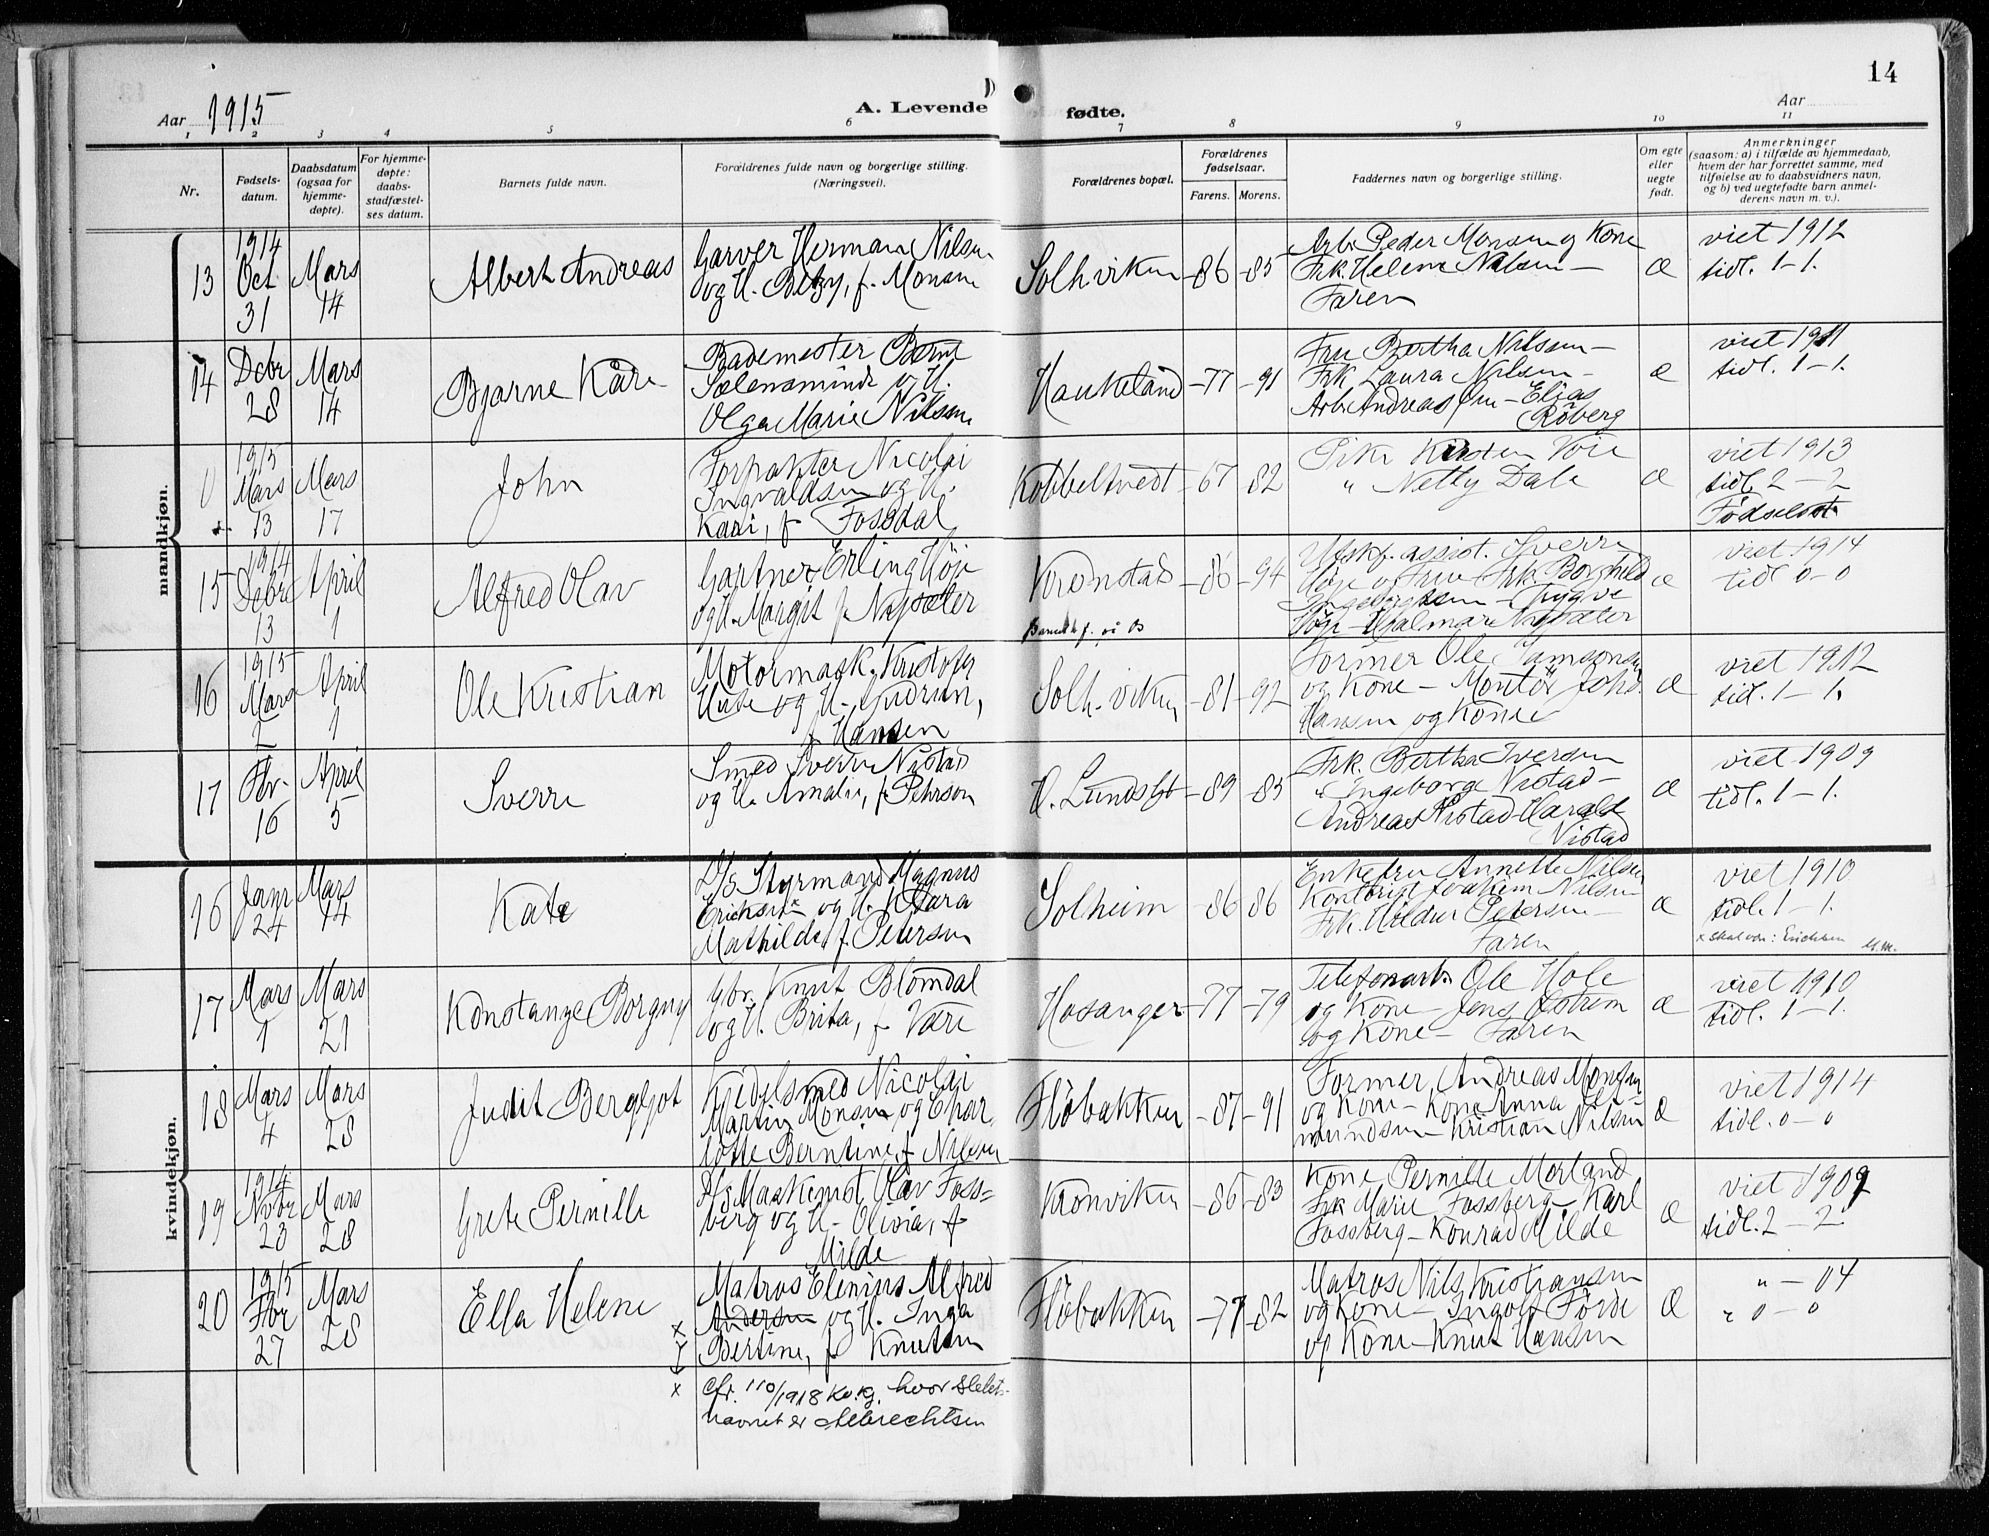 14
Aar 1915
A. Levende fødte.
Aar
1 2 3 4 5 6 7 8 9 10 11
Nr.
Fødsels-
datum.
Daabsdatum
(ogsaa for
hjemme-
døpte).
For hjemme-
døpte:
daabs-
stadfæstel-
ses datum.
Barnets fulde navn.
Forældrenes fulde navn og borgerlige stilling.
(Næringsvei).
Forældrenes bopæl.
Forældrenes
fødselsaar.
Farens. Morens.
Faddernes navn og borgerlige stilling.
Om egte
eller
uegte
født.
Anmerkninger
(saasom: a) i tilfælde av hjemmedaab,
hvem der har forrettet samme, med
tilføielse av to daabsvidners navn,
og b) ved uegtefødte barn anmel-
derens navn m. v.).
mandkjøn.
13
1914
Oct
31
Mars
14
Albert Andreas
Garver Herman Nilsen
og H. Betzy, f. Monsen
Solhviken
-86 -85
Arb. Peder Monsen og Kone
Frk. Helene Nilsen -
Faren
Æ
viet 1912
tidl. 1-1.
14
Debr
28
Mars
14
Bjarne Kåre
Bademester Bernt
Sælensminde og H.
Olga Marie Nilsen
Haukeland
-77 -91
Fru Bertha Nilsen -
Frk Laura Nilsen -
Arb. Andreas - Elias
Røberg
Æ
viet 1911
tidl. 1-1.
0
1915
Mars
13
Mars
17
John
Forpakter Nicolai
Ingvaldsen og H.
Kari, f. Fosdal
Kobbeltvedt
-67 -82
Pike Kirsten Voie
" Netty Dale
Æ
viet 1913
tidl. 2-2
Fødselsst.
15
1914
Debr
13
April
1
Alfred Olav
Gartner Erling Høje
og H. Margit f. Nysæter
Kronstad
Barnet f. i Os
-86 -94
assist. Sverre
Høje og Frue Frk. Borghild
Ingebrigtsen - Trygve
Høje - Hjalmar Nysæter
Æ
viet 1914
tidl 0-0
16
1915
Mars
2
April
1
Ole Kristian
Motormask. Kristofer
og H. Gudrun,
f. Hansen
Solh.viken
-81 -92
Former Ole Samsonsen
og Kone - Montør Johs.
Hansen og Kone
Æ
viet 1912
tidl. 1-1.
17
Fbr.
16
April
5
Sverre
Smed Sverre Nistad
og H. Amalie, f. Pehrson
-89 -85
Frk. Bertha Iversen
" Ingeborg Nistad -
Andreas Nistad - Harald
Nistad
Æ
viet 1909
tidl. 1-1.
kvindekjøn.
16
Janr
24
Mars
14
Kate
D/s Styrmand Magnus
Ericksen x og H. Klara
Mathilde, f. Petersen
Solheim
-86 86
Enkefru Annette Nilsen
Kontorist Joakim Nilsen
Frk. Hildur Petersen -
Faren
Æ
viet 1910
tidl. 1-1.
x skal vær: Erichsen M.M.
17
Mars
1
Mars
21
Konstanze Borgny
Gbr. Knut Blomdal
og H. Brita, f. Være
Hosanger
-77 -79
Telefonarb. Ole Hole
og Kone - Jens Østrem
og Kone - Faren
Æ
viet 1910
tidl. 1-1.
18
Mars
4
Mars
28
Judit Bergljot
Kjedelsmed Nicolai
Martin Monsen og Char
lotte Berntine, f. Nilsen
Fløbakken
-87 -91
Former Andreas Monsen
og Kone - Kone Anna
mundsen - Kristian Nilsen
Æ
viet 1914
tidl. 0-0
19
1914
Novbr
23
Mars
28
Grete Pernille
D/s Maskinist Olav Foss=
berg og H. Olivia, f.
Milde
Kronviken
-86 -83
Kone Pernille Morland
Frk Marie Fossberg - Karl
Fossberg - Konrad Milde
Æ
viet 1909
tidl. 2-2
20
1915
Fbr
27
Mars
28
Ella Helene
Matros Elenius Alfred
x Andersen og H. Inga
Bertine, f. Knutsen
Fløbakken
-77 -82
Matros Nils Kristiansen
og Kone - Ingolf Førde
og Kone - Knut Hansen
Æ
" - 04
" 0-0
x cfr. 110/1918 kv.kj. hvor slekts-
navnet er Albrechtsen